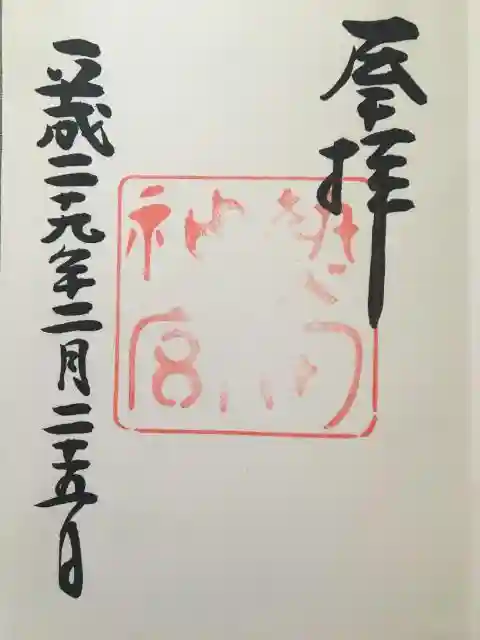 奉拝
熱田
神宮
平成二十九年二月二十五日